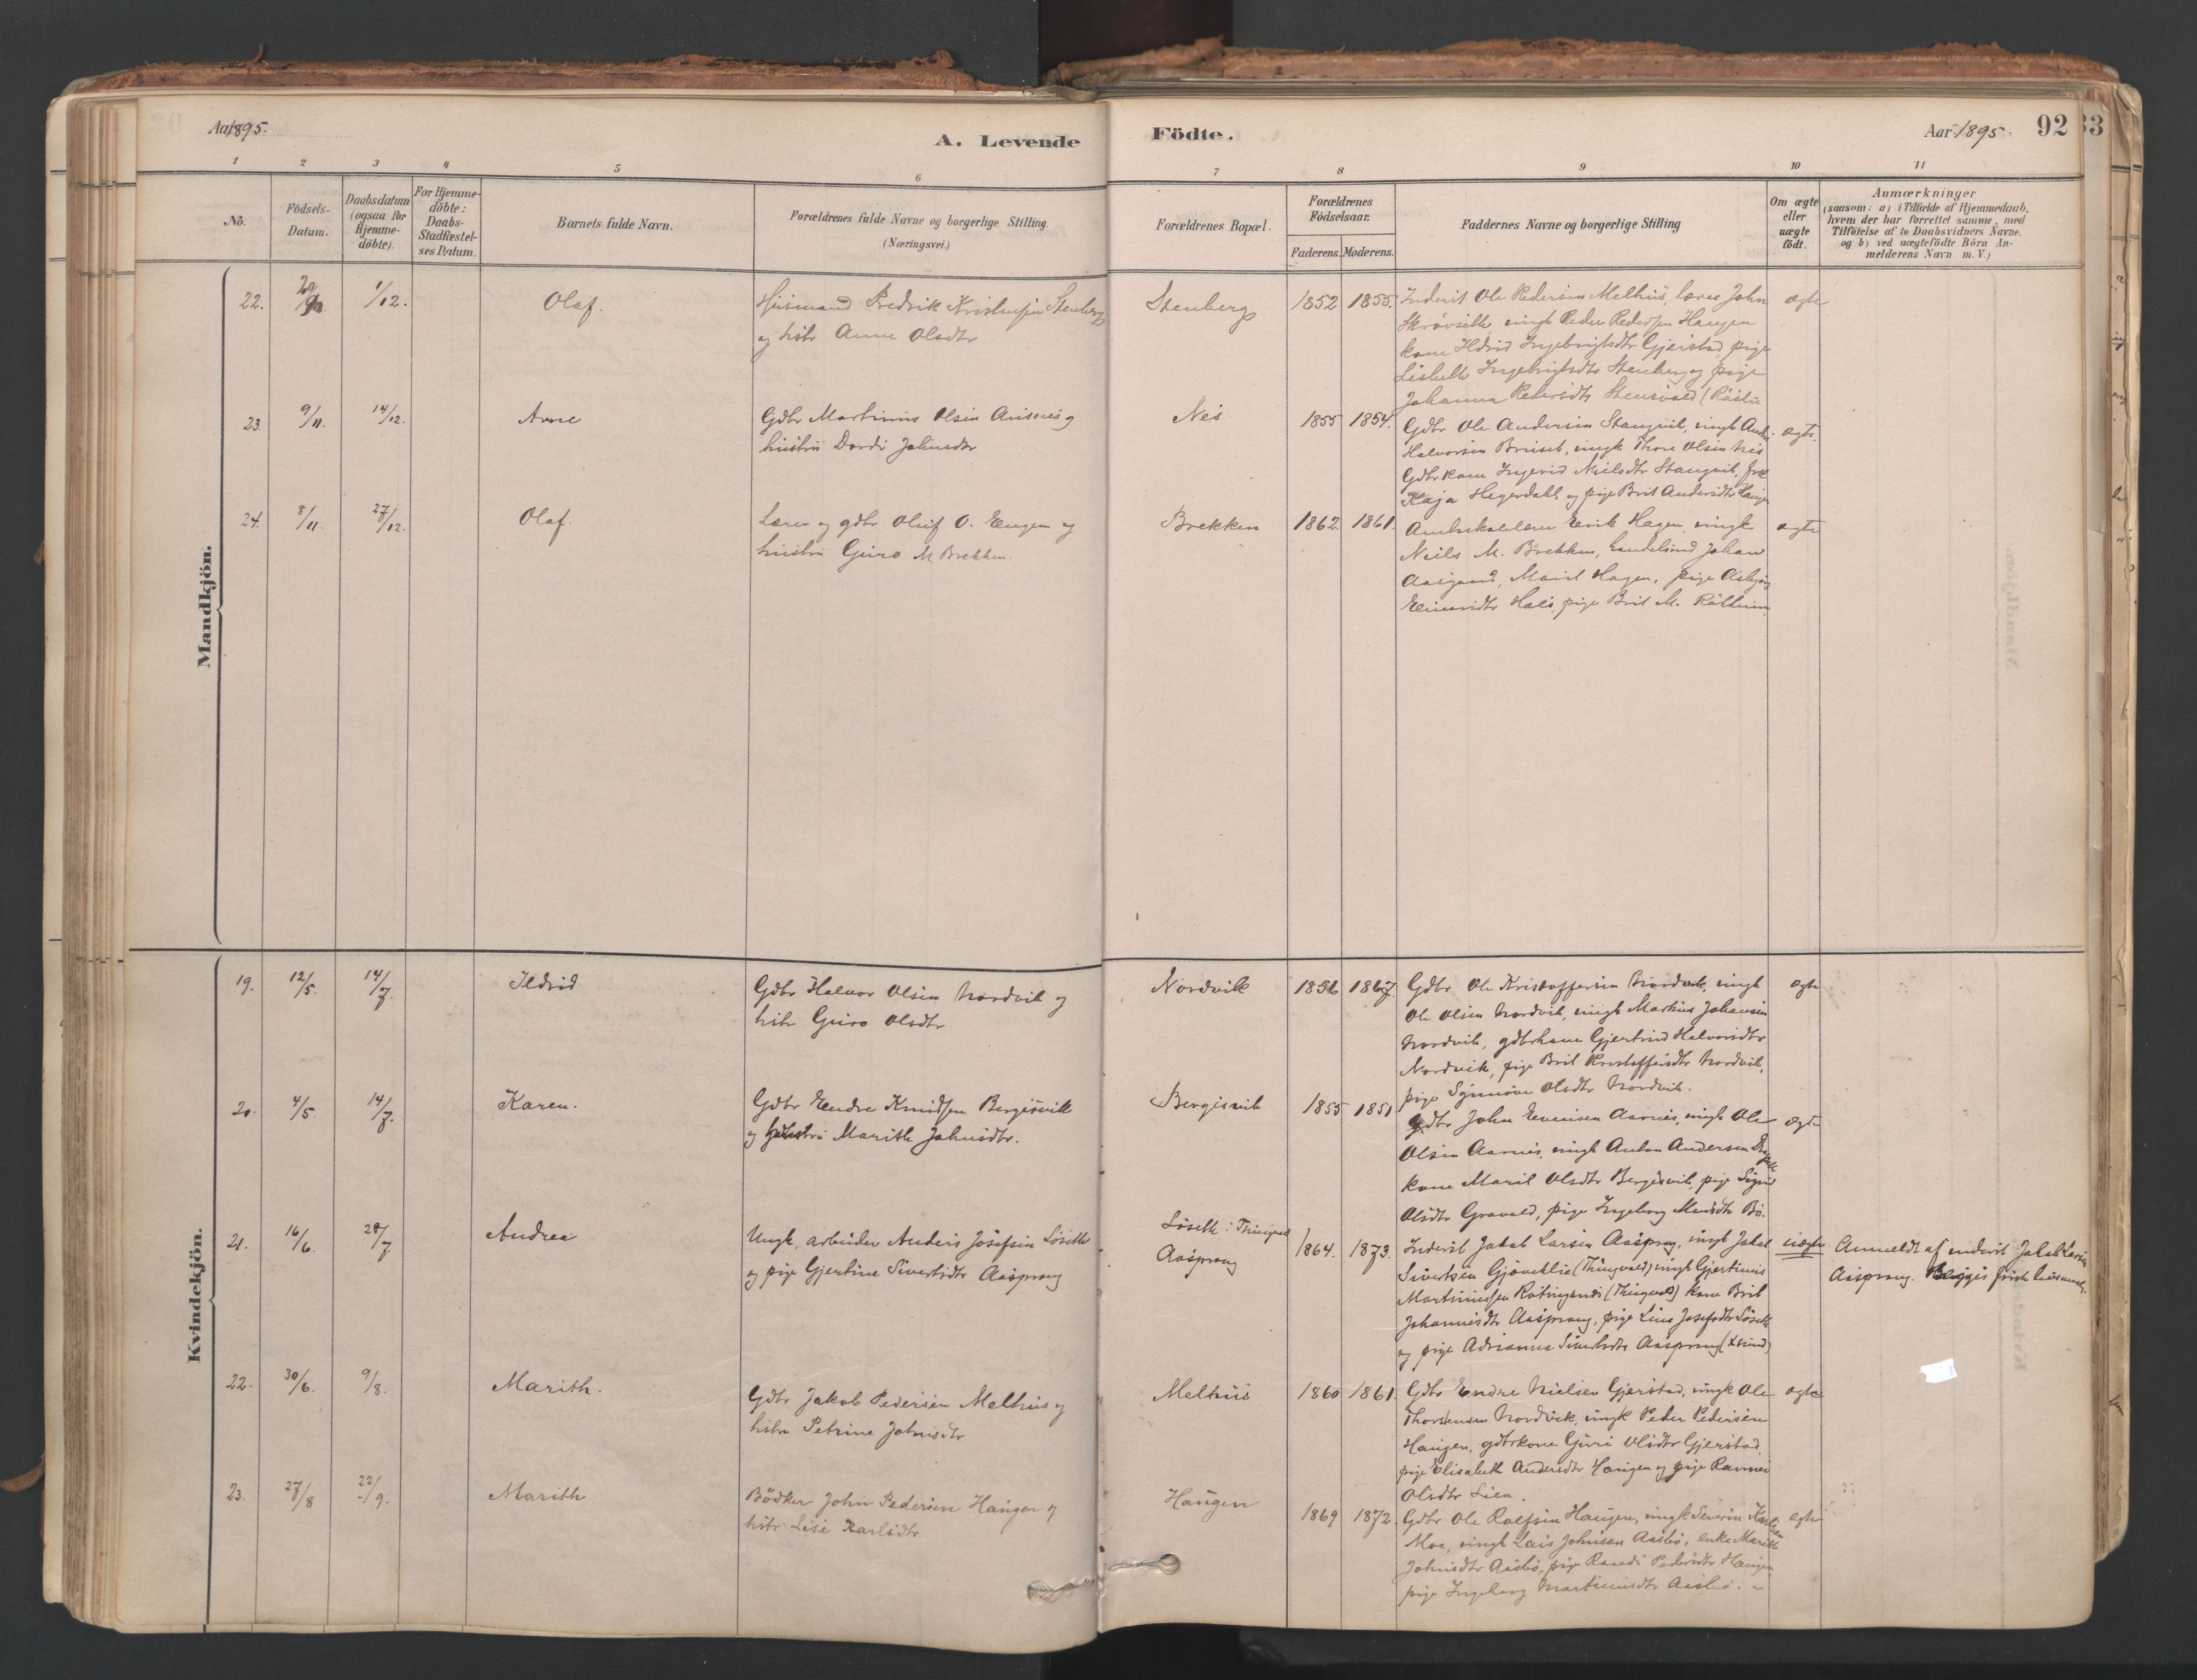 Aar 1895.
A. Levende
Födte.
Aar 1895.
92
33
1 2 3 4 5 6 7 8 9 10 11
No.
Födsels-Datum.
Daabsdatum (ogsaa for Hjemme-döbte).
For Hjemme-döbte: Daabs-Stadfæstel-ses Datum.
Barnets fulde Navn.
Forældrenes fulde Navne og borgerlige Stilling.
(Næringsvei.)
Forældrenes Bopæl.
Forældrenes Födselsaar.
Faderens. Moderens.
Faddernes Navne og borgerlige Stilling
Om ægte eller uægte födt.
Anmærkninger
(saasom: a) i Tilfælde af Hjemmedaab,
hvem der har forrettet samme, med
Tilföielse af to Daabsvidners Navne.
og b) ved uægtefödte Börn An-
melderens Navn m. V.)
Mandkjön.
22. 1/12. Olaf.
Husmand Fredrik Kristensen Stenberg
og hstr Anne Olsdtr
Stenberg 1852 1855.
Inderst Ole Pedersen Melhus, lærer John
Skrøvseth, ungk Peder Pedersen Haugen
kone Ildrid Ingebrigtsdtr Gjerstad, pige
Lisbeth Ingebrigtsdtr Stenberg og pige
Johanna Petersdtr
ægte
23. 9/11. 14/12. Arne
Gdbr Martinus Olsen og
hustru Dordi Johnsdtr
Nes 1855 1854.
Gdbr Ole Andersen Stangvik, ungk
Halvorsen Bruset, ungk Thore Olsen Nes
Gdbrkone Ingerid Nielsdtr Stangvik, frk
Kaja Hegerdahl og pige Brit Andersdtr
ægte.
24. 8/11. 27/12. Olaf.
Lærer og gdbr Oluf O. Engen og
hustru Guro M. Brekken.
Brekken 1862. 1861.
Erik Hagen, ungk
Niels M. Brekken, Johan
Aasgaard, Marit Hagen, pige
Hals, pige Brit M.
ægte
Kvindekjön.
19. 12/5. 14/7. Ildrid
Gdbr Halvor Olsen Nordvik og
hstr Guro Olsdtr
Nordvik 1856 1867.
Gdbr Ole Kristoffersen Nordvik, ungk
Ole Olsen Nordvik, ungk Martin Johansen
Nordvik, gdbrkone Gjertrud Halvorsdtr
Nordvik, pige Brit Kristoffersdtr Nordvik,
pige Synnøve Olsdtr Nordvik.
ægte
20. 4/5. 14/7. Karen.
Gdbr Endre Knudsen Bergisvik
og hustru Marith Johnsdtr.
Bergisvik 1855 1851
Gdbr John Evensen Aarnes, ungk Ole
Olsen Aarnes, ungk Anton Andersen
kone Marit Olsdtr Bergisvik, pige Sigrid
Olsdtr Gravald, pige Ingeborg
ægte
21. 16/6. 28/7. Andrea
Ungk, arbeider Anders Josefsen Løseth
og pige Gjertine Sivertsdtr Aasprang
Løseth i Thingvold
Aasprang
1864. 1873.
Inderst Jakob Larsen Aasprang, ungk Jakob
Sivertsen (Thingvold) ungk Gjertinus
Martinussen (Thingvold) kone Brit
Johannesdtr Aasprang, pige Lina Josefsdtr Løseth
og pige Adrianna Sivertsdtr Aasprang
uægte
Anmeldt af inderst Jakob Larsen
Aasprang. Begges
22. 30/6. 9/8. Marith.
Gdbr Jakob Pedersen Melhus og
hstru Petrine Johnsdtr
Melhus 1860 1861.
Gdbr Endre Nielsen Gjerstad, ungk Ole
Thorstensen Nordvik, ungk Peder Pedersen
Haugen, gdbrkone Guri Olsdtr Gjerstad,
pige Elisabeth Andersdtr Haugen og pige
Olsdtr Lien.
ægte
23. 27/8 22/9. Marith
Bödker John Pedersen Haugen og
hstr Lise Karlsdtr
Haugen 1869 1872.
Gdbr Ole Rolfsen Haugen, ungk Severin Karlsen
Moe, ungk Lars Johnsen Aasbø, enke Marith
Johnsdtr Aasbø, pige Randi Pedersdtr Haugen
pige Ingeborg Martinusdtr Aasbø.
ægte